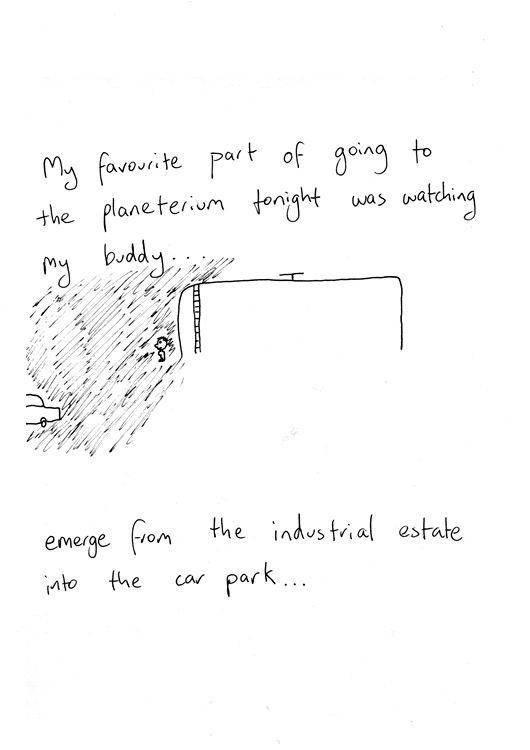 My favourite part of going to
the planeterium tonight was watching
my buddy...
emerge from the industrial estate
into the car park...